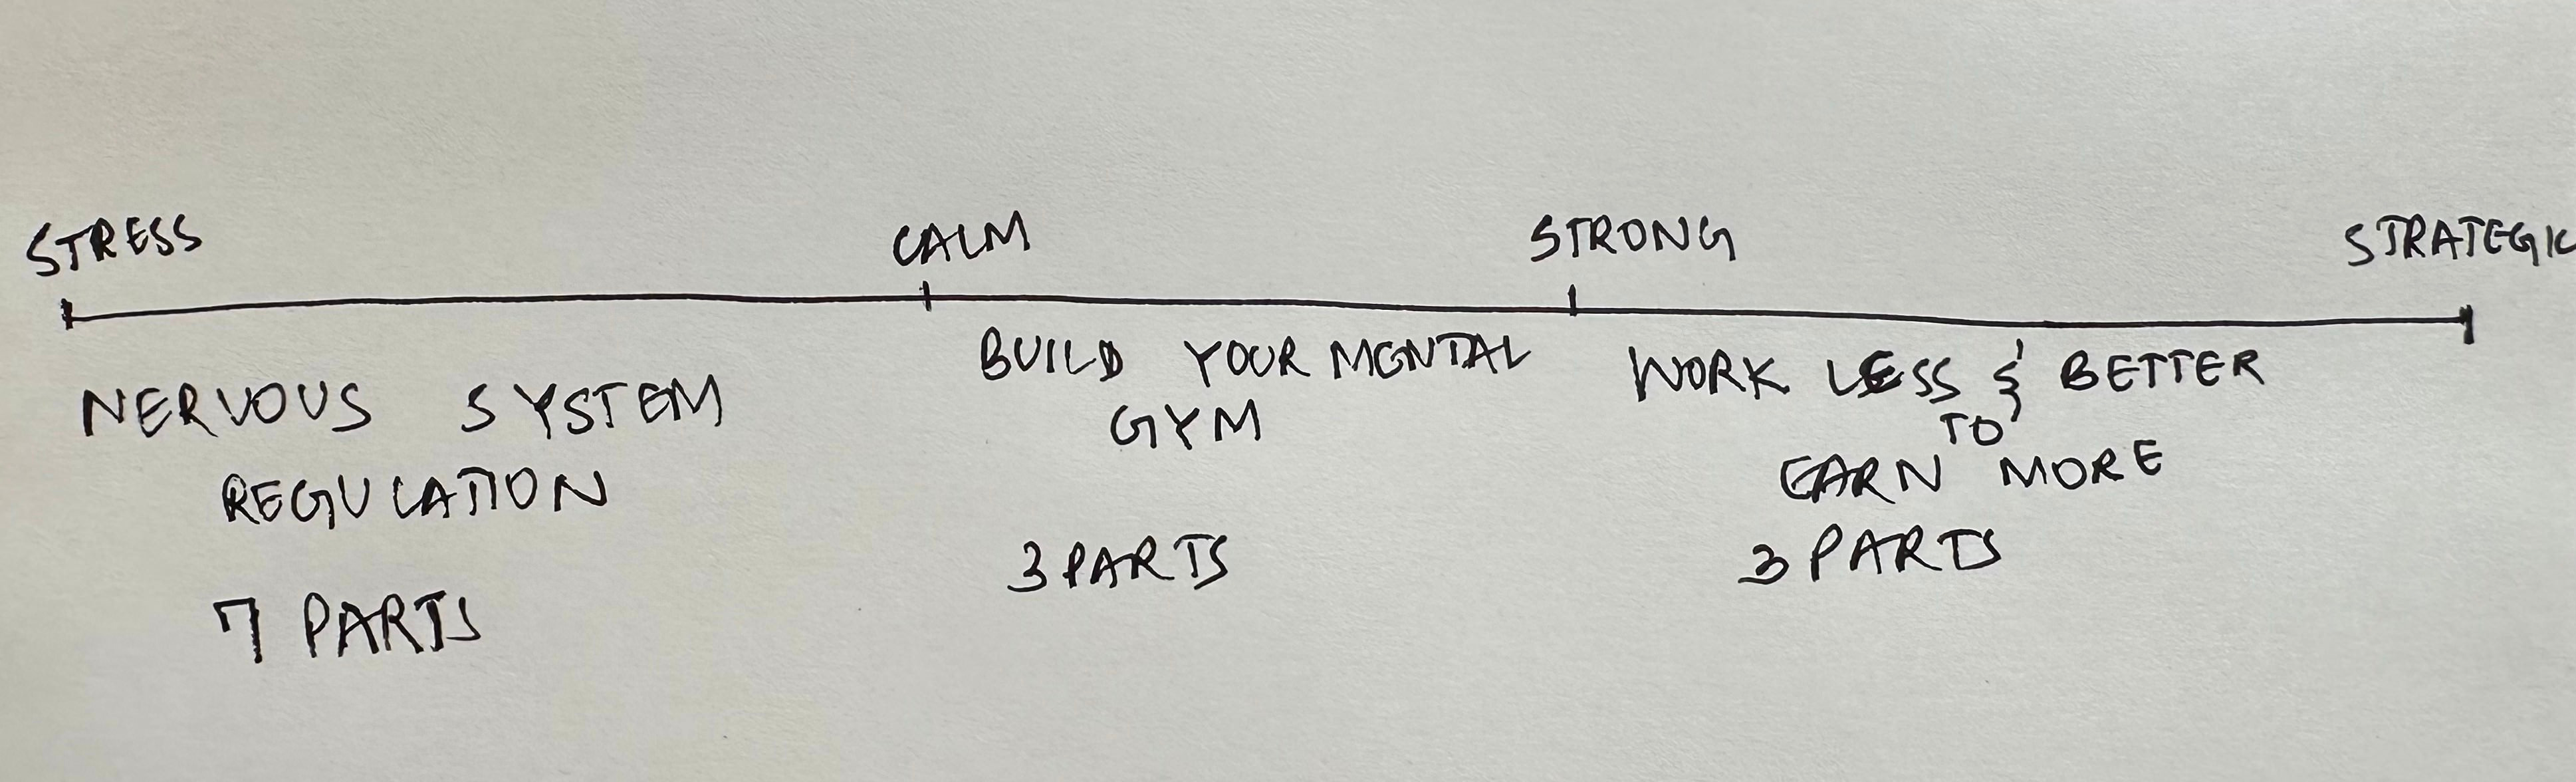 STRESS CALM STRONG STRATEGIC
NERVOUS SYSTEM
REGULATION
7 PARTS
BUILD YOUR MENTAL
GYM
3 PARTS
WORK LESS & BETTER
TO
EARN MORE
3 PARTS